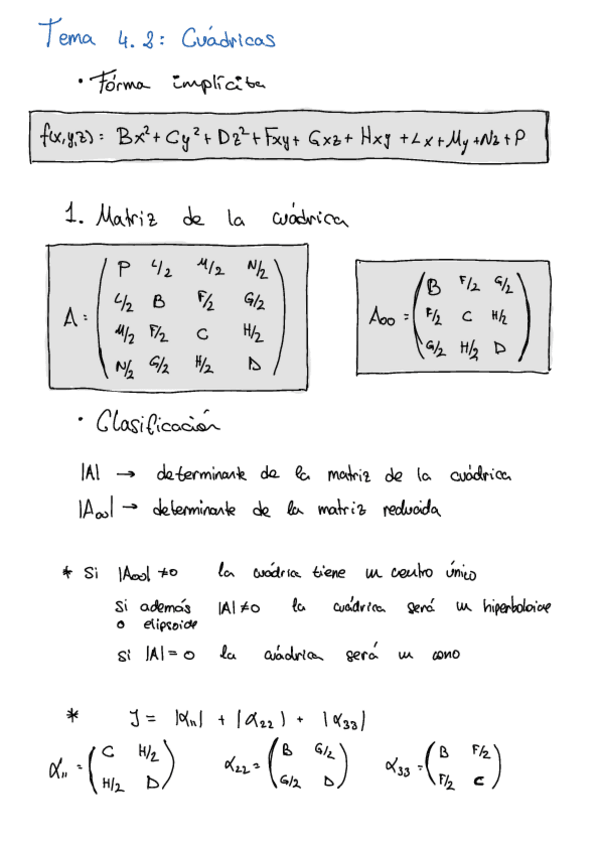 Tema 4.2: Cuádricas
• Forma implícita
f(x,y,z) = Bx² + Cy² + Dz² + Fxy + Gxz + Hxy + Lx + My + Nz + P
1. Matriz de la cuádrica
A = ( P L/2 M/2 N/2
L/2 B F/2 G/2
M/2 F/2 C H/2
N/2 G/2 H/2 D )
A∞ = ( B F/2 G/2
F/2 C H/2
G/2 H/2 D )
• Clasificación
|A| → determinante de la matriz de la cuádrica
|A∞| → determinante de la matriz reducida
* Si |A∞| ≠ 0 la cuádrica tiene un centro único
Si además |A| ≠ 0 la cuádrica será un hiperboloide
o elipsoide
si |A| = 0 la cuádrica será un cono
* J = |α₁₁| + |α₂₂| + |α₃₃|
α₁₁ = ( C H/2
H/2 D )
α₂₂ = ( B G/2
G/2 D )
α₃₃ = ( B F/2
F/2 C )